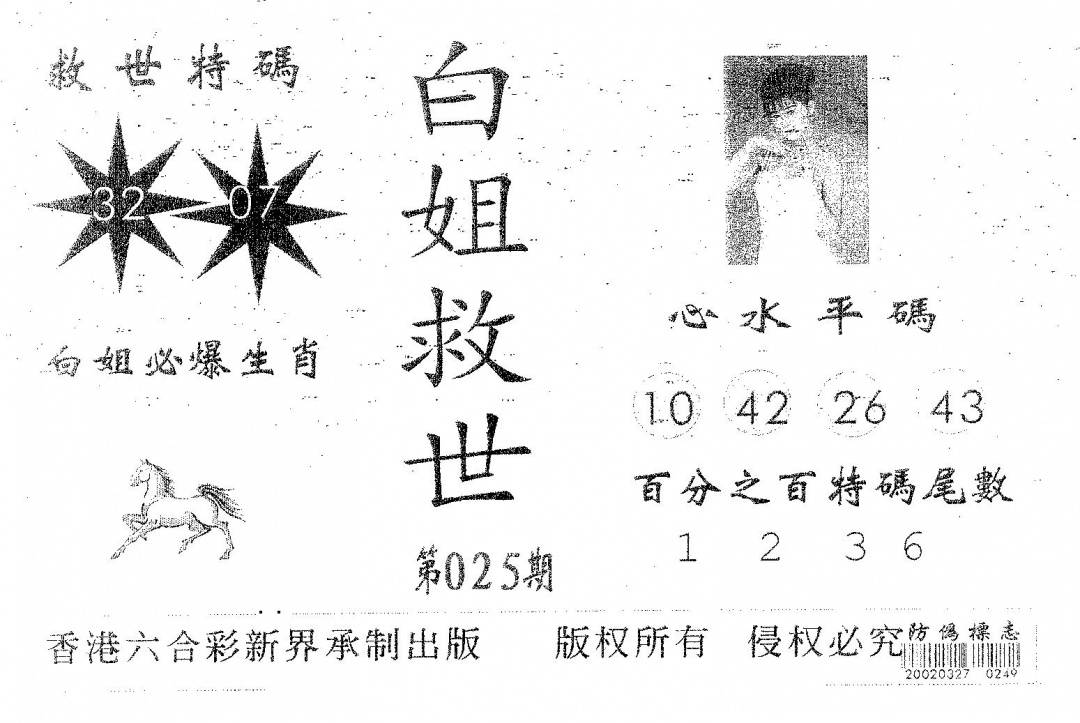 救世特碼
32 07
白姐必爆生肖
白姐救世
第025期
心水平碼
10 42 26 43
百分之百特碼尾數
1 2 3 6
香港六合彩新界承制出版 版权所有 侵权必究
防偽標志
20020327 0249